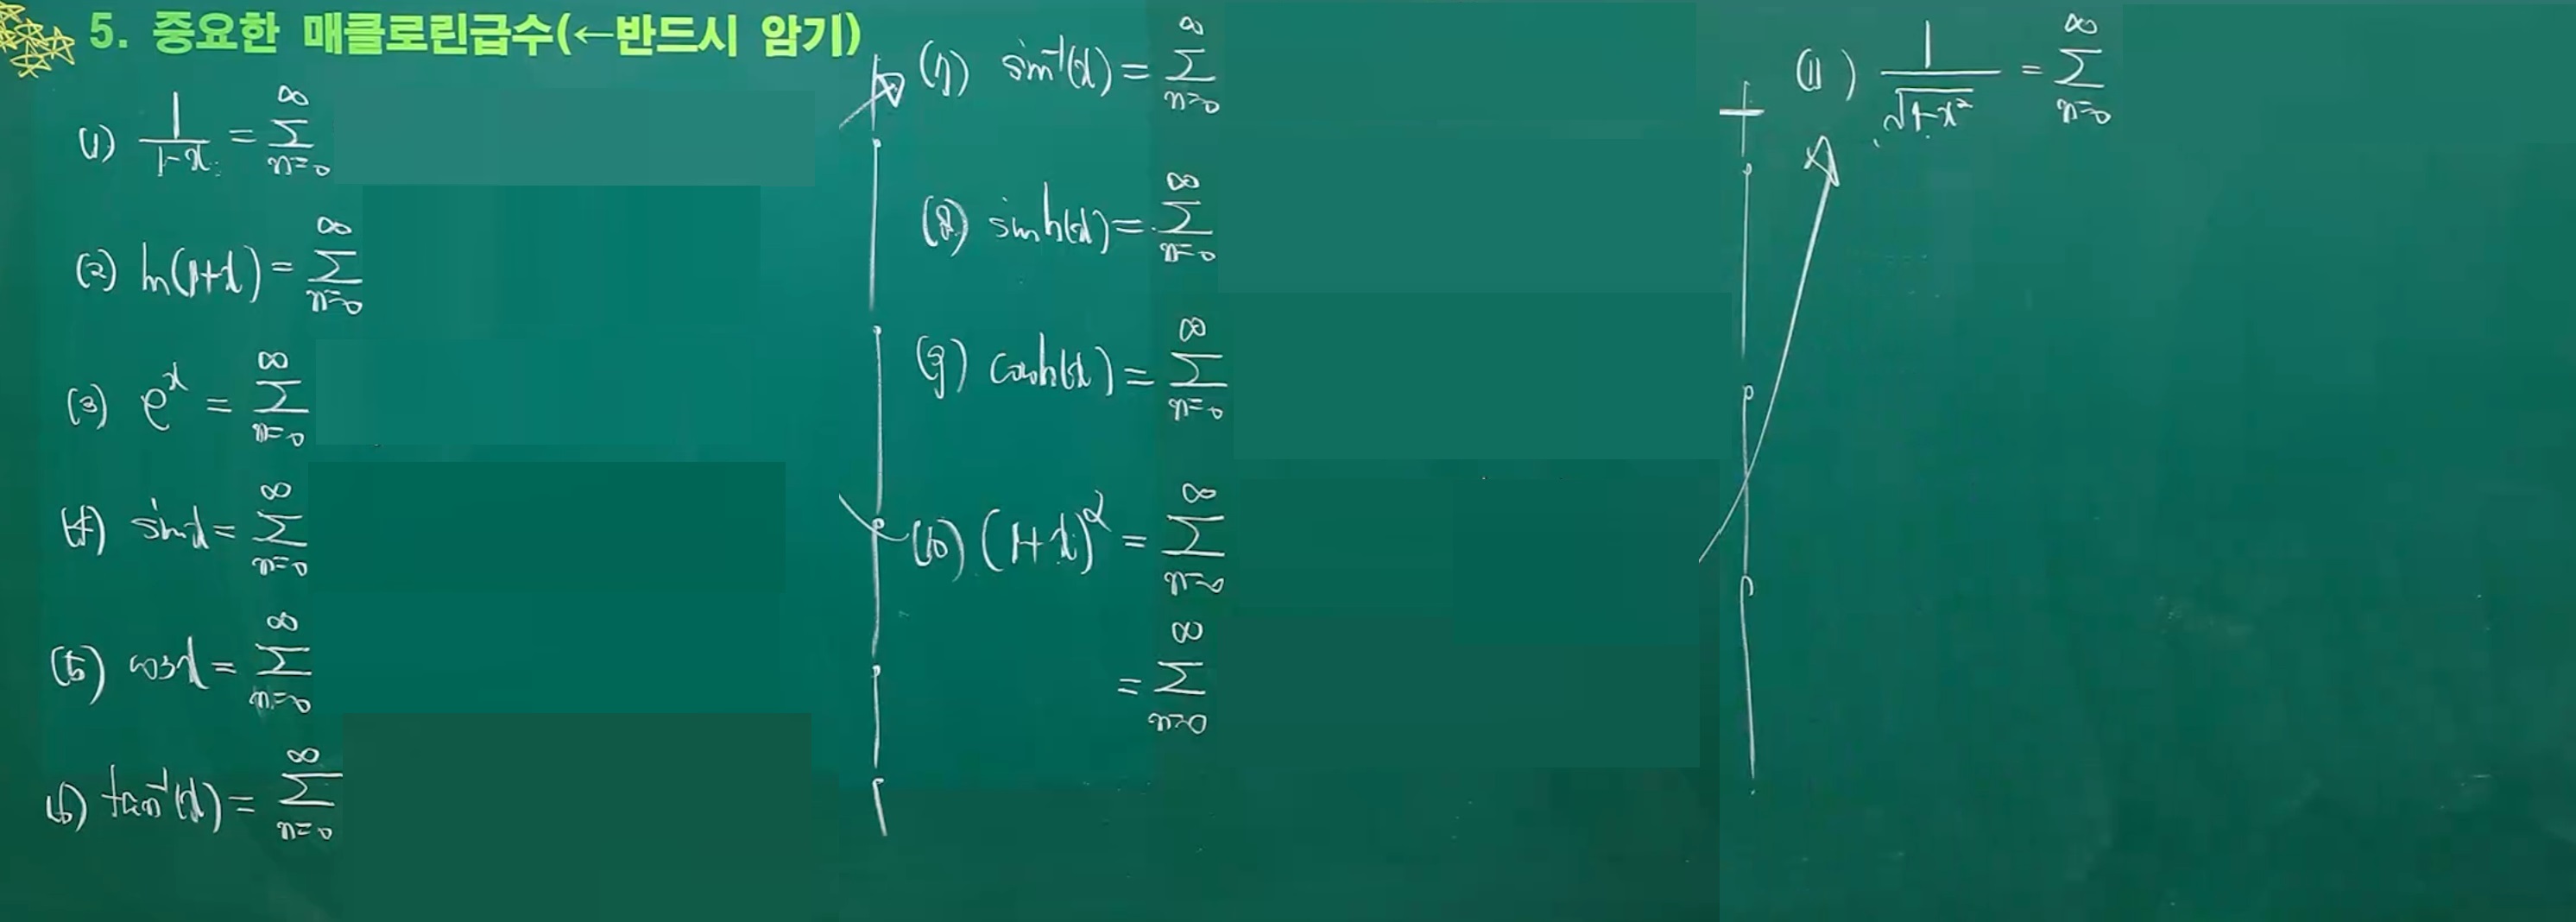 5. 중요한 매클로린급수(←반드시 암기)
(1) \frac{1}{1-x} = \sum_{n=0}^{∞}
(2) ln(1+x) = \sum_{n=0}^{∞}
(3) e^x = \sum_{n=0}^{∞}
(4) sinx = \sum_{n=0}^{∞}
(5) cosx = \sum_{n=0}^{∞}
(6) tan^{-1}(x) = \sum_{n=0}^{∞}
(7) sin^{-1}(x) = \sum_{n=0}^{∞}
(8) sinh(x) = \sum_{n=0}^{∞}
(9) cosh(x) = \sum_{n=0}^{∞}
(10) (1+x)^α = \sum_{n=0}^{∞}
= \sum_{n=0}^{∞}
(11) \frac{1}{\sqrt{1-x^2}} = \sum_{n=0}^{∞}